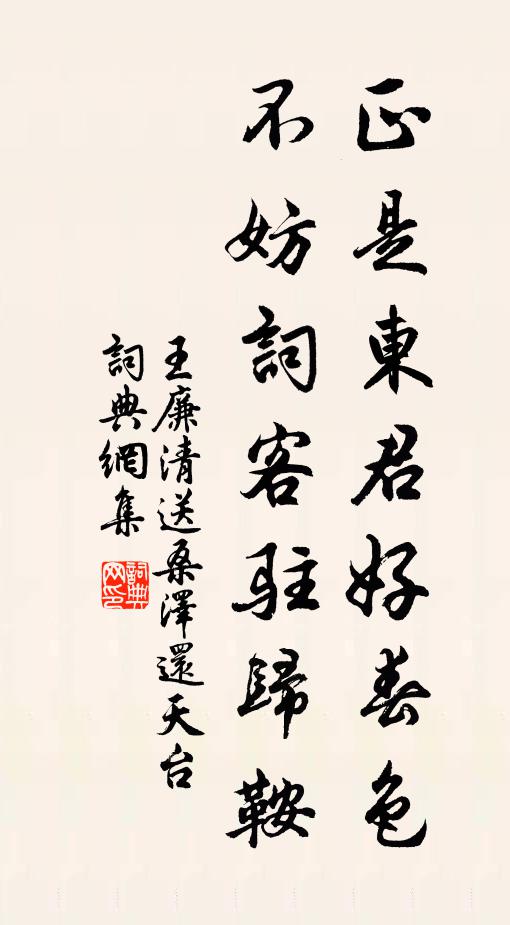 正是東君好春色
不妨詞客駐歸鞍
王廉清送桑澤還天台
詞典網集
詞典网印